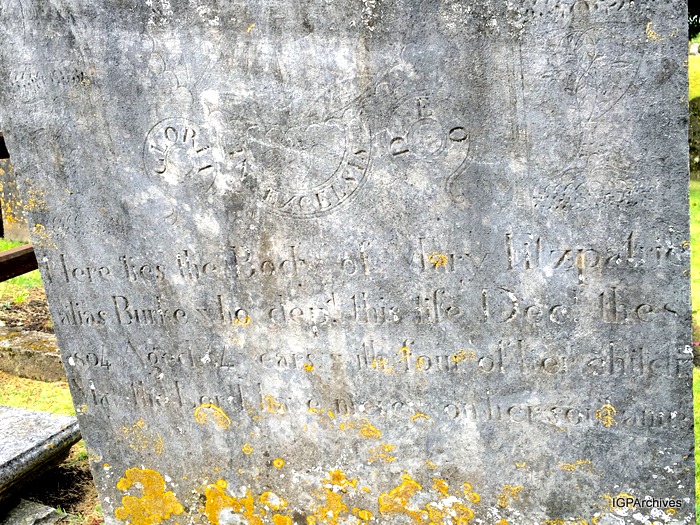 GLORIA IN EXCELSIS DEO
Here lies the Body of Mary Fitzpatric
alias Burke who dept. this life Decr. the
Aged years with four of her childr
May the Lord have mercy on her soul amen
IGPArchives